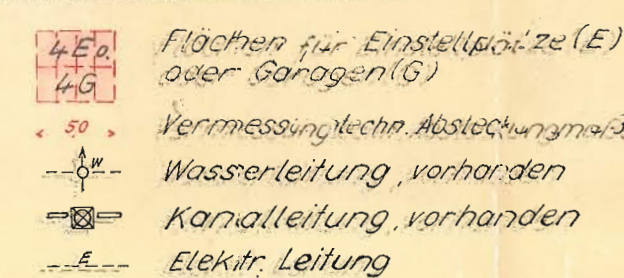 4 E o. Flächen für Einstellplätze (E)
4 G oder Garagen (G)
50 Vermessungstechn. Absteckungsmaß
W Wasserleitung, vorhanden
Kanalleitung, vorhanden
E Elektr. Leitung